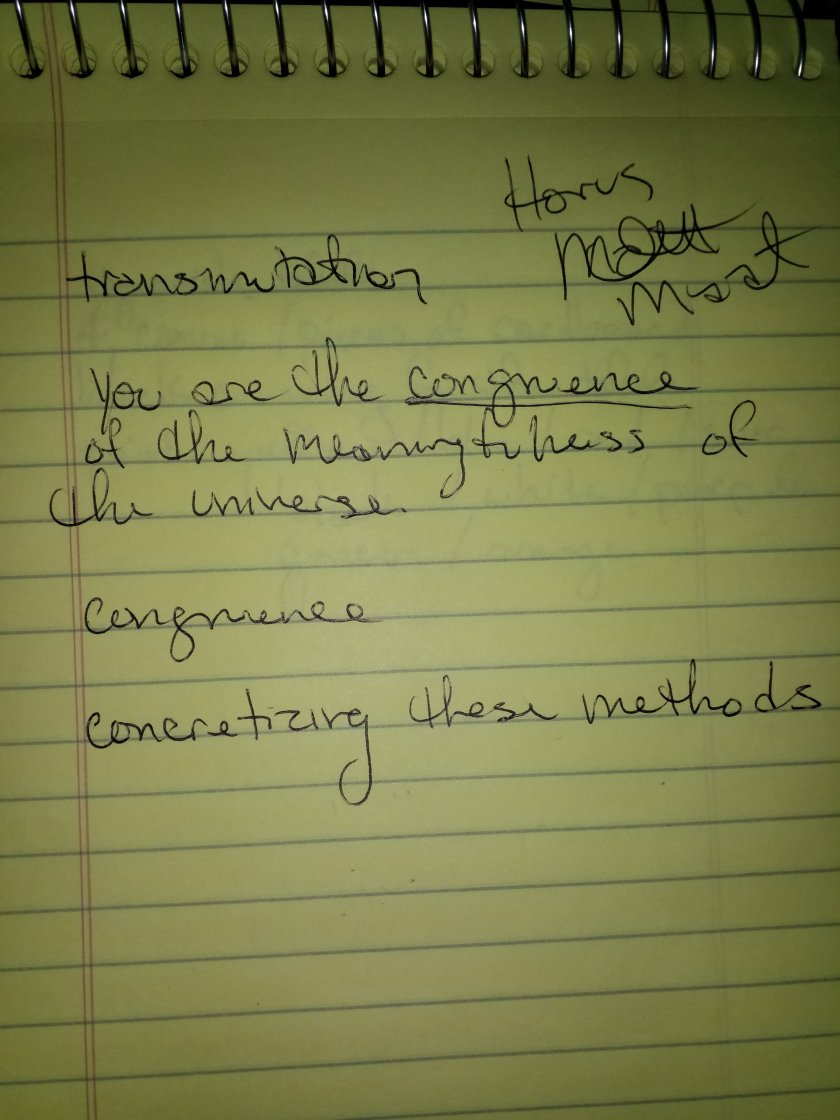 Horus
Maat
transmutation
You are the congruence
of the meaningfulness of
the universe.
congruence
concretizing these methods